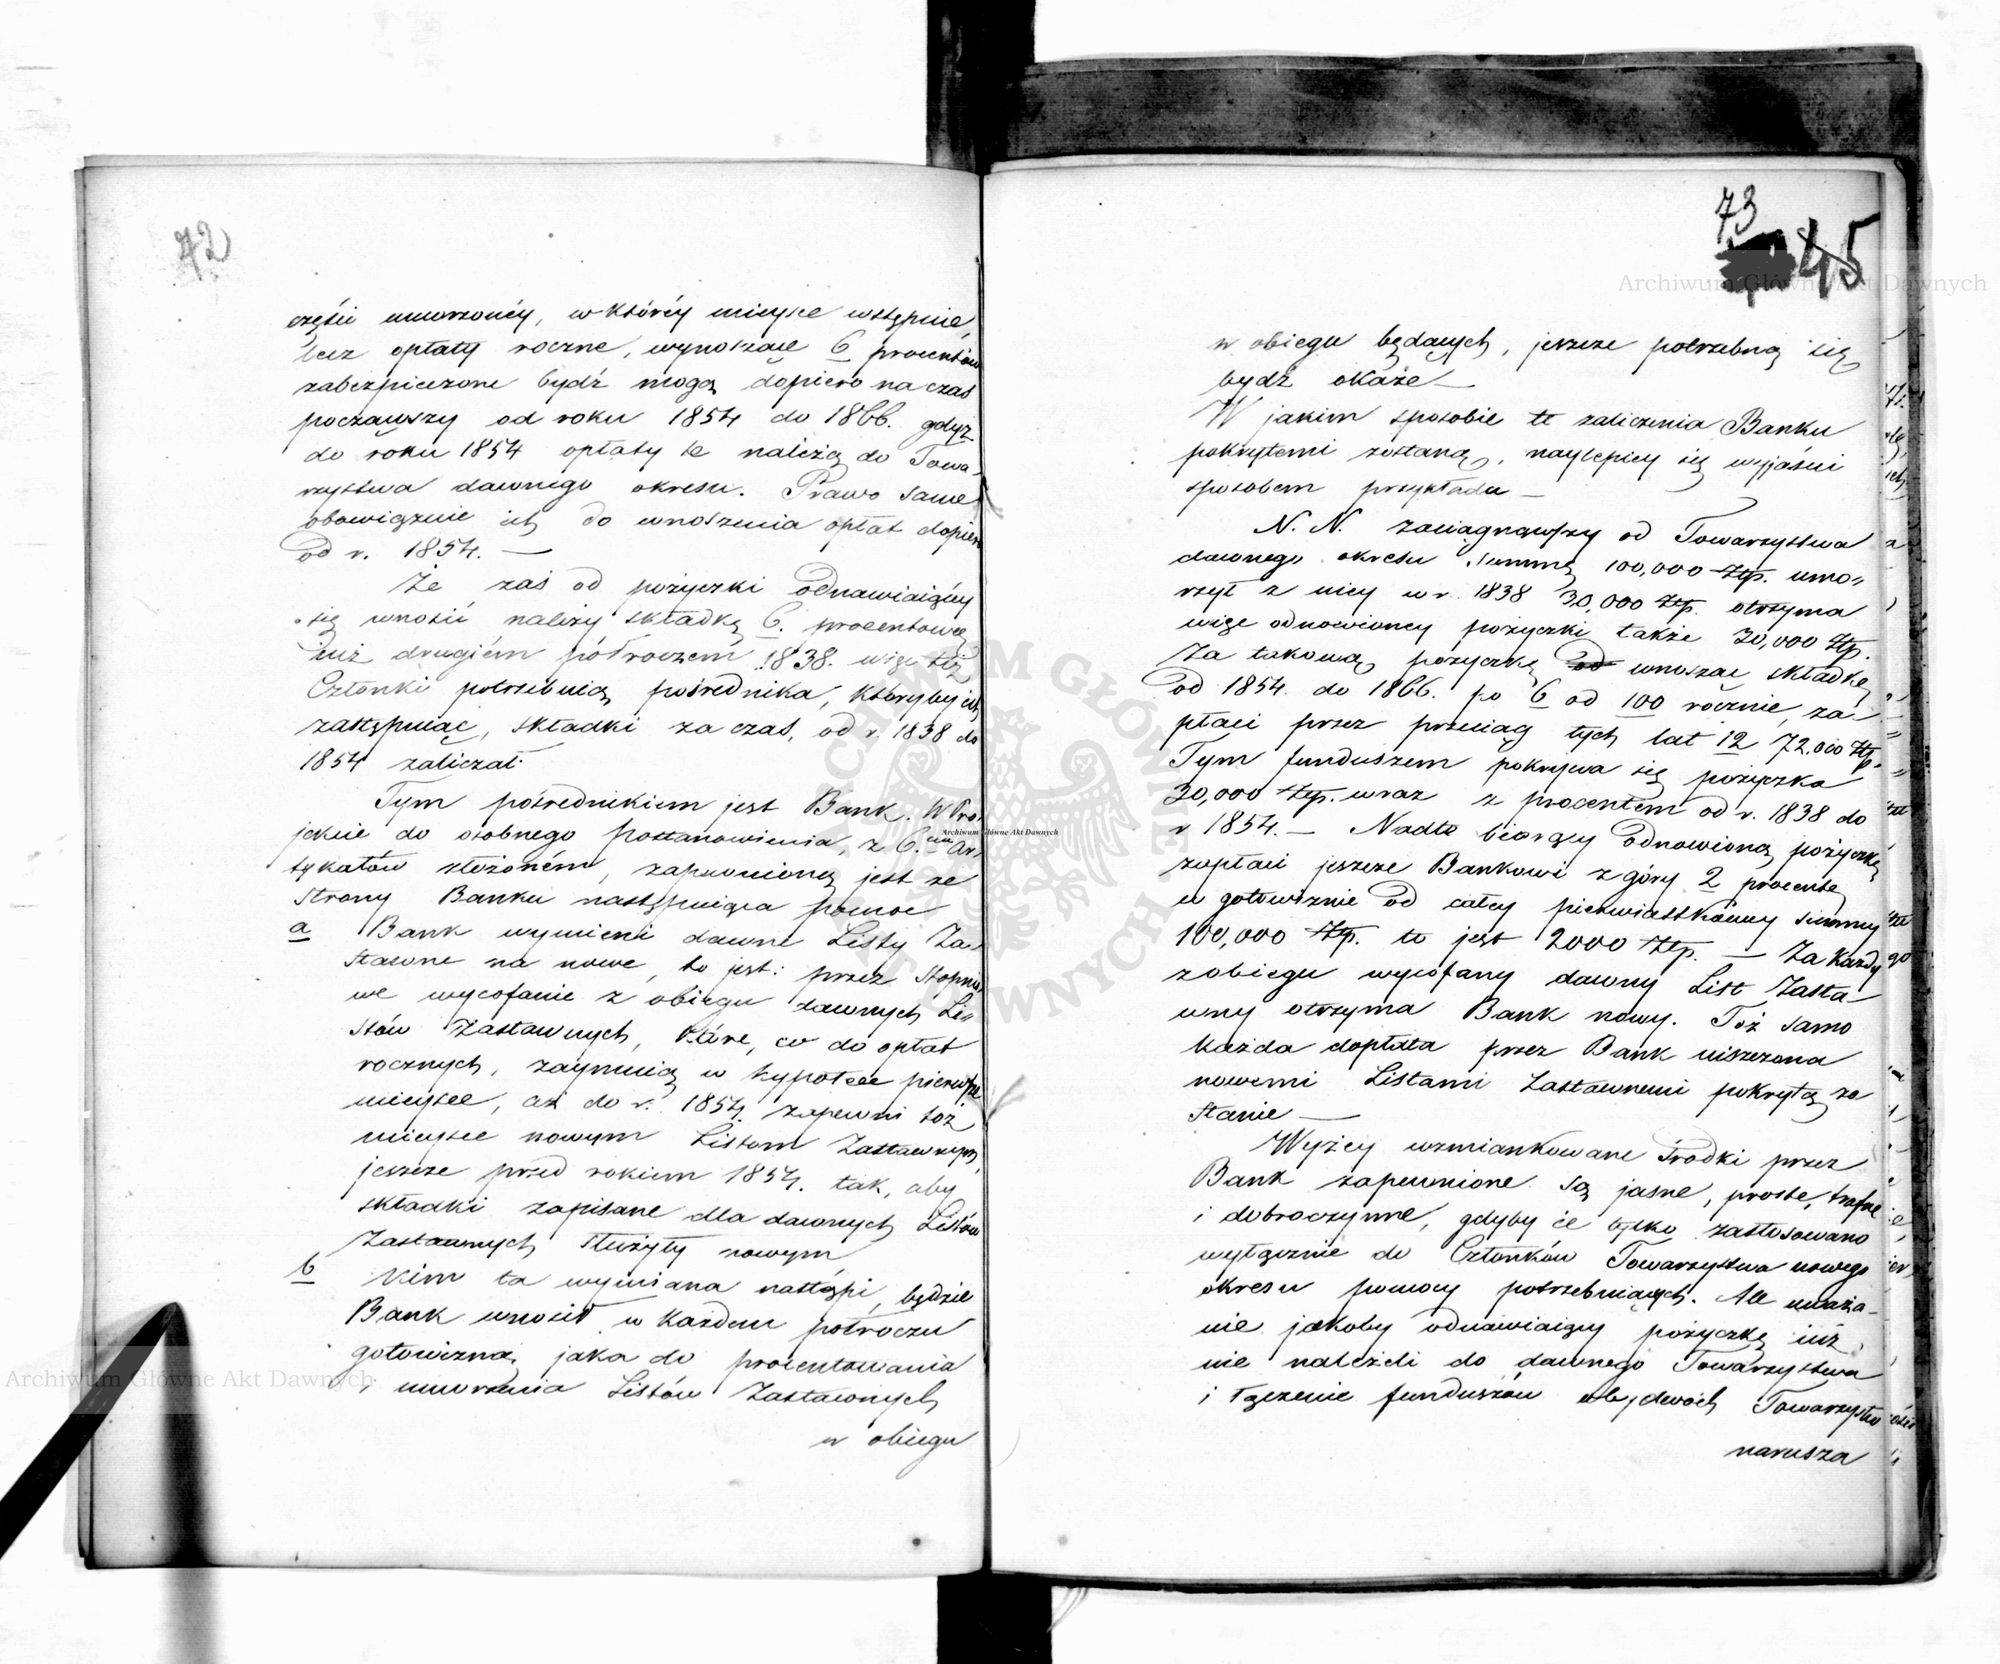 72
części umorzonéy, w któréy mieysce wstępuie,
lecz opłaty roczne, wynoszące 6 procentów
zabezpieczone bydź mogą dopiero na czas
począwszy od roku 1854 do 1866. gdyż
do roku 1854 opłaty te należą do Towa-
rzystwa dawnego okresu. Prawo same
obowiązuie ich do wnoszenia opłat dopiero
od r. 1854. —
Że zaś od pożyczki odnawiaiącéy
się wnosić należy składkę 6. procentową
iuż drugiém półroczem 1838. więc też
Członki potrzebuią pośrednika, któryby ich
zastępuiąc, składki za czas, od r. 1838 do
1854 zaliczał.
Tym pośrednikiem jest Bank. W Pro-
jekcie do osobnego postanowienia, z 6.ciu Ar-
tykułów złożoném, zapewnioną jest ze
strony Banku następuiąca pomoc
a Bank wymieni dawne Listy Za-
stawne na nowe, to jest: przez stopnio
we wycofanie z obiegu dawnych Li-
stów Zastawnych, które, co do opłat
rocznych, zaymuią w hypotece pierwsze
mieysce, aż do r. 1854. zapewni toż
mieysce nowym Listom Zastawnym,
jeszcze przed rokiem 1854. tak, aby
składki zapisane dla dawnych Listów
Zastawnych służyły nowym
b Nim ta wymiana nastąpi, będzie
Bank wnosił w każdem półroczu
gotowizną, jaka do procentowania
i umorzenia Listów Zastawnych
w obiegu
73
45
w obiegu będących, jeszcze potrzebną się
bydź okaże —
W jakim sposobie te zaliczenia Banku
pokrytemi zostaną, naylepiey się wyjaśni
sposobem przykładu —
N. N. zaciągnąwszy od Towarzystwa
dawnego okresu summę 100,000 Złp. umo-
rzył z niey w r. 1838 30,000 Złp. otrzyma
więc odnowioney pożyczki także 30,000 Złp.
Za takową pożyczkę od wnosząc składkę
od 1854 do 1866. po 6 od 100 rocznie, za-
płaci przez przeciąg tych lat 12 72.000 Złp.
Tym funduszem pokrywa się pożyczka
30,000 Złp. wraz z procentem od r. 1838 do
r 1854. — Nadto biorący odnowioną pożyczkę
zapłaci jeszcze Bankowi z góry 2 procenta
w gotowiznie od całey pierwiastkowey summy
100,000 Złp. to jest 2000 Złp. — Za każdy
z obiegu wycofany dawny List Zasta-
wny otrzyma Bank nowy. Toż samo
każda dopłata przez Bank uiszczona
nowemi Listami Zastawnemi pokrytą zo
stanie —
Wyżey wzmiankowane środki przez
Bank zapewnione są jasne, proste, trafne
i dobroczynne, gdyby ie tylko zastosowano
wyłącznie do Członków Towarzystwa nowego
okresu pomocy potrzebuiących. Ale uważa-
nie jakoby odnawiaiący pożyczkę iuż
nie należeli do dawnego Towarzystwa
i łączenie funduszów obydwóch Towarzystw
narusza
Archiwum Główne Akt Dawnych
Archiwum Główne Akt Dawnych
Archiwum Główne Akt Dawnych
ARCHIWUM GŁÓWNE AKT DAWNYCH